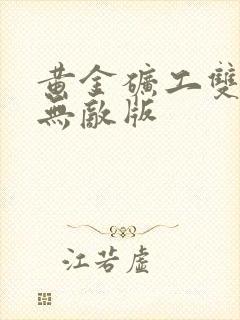 黃金礦工雙
無敵版
江若虛